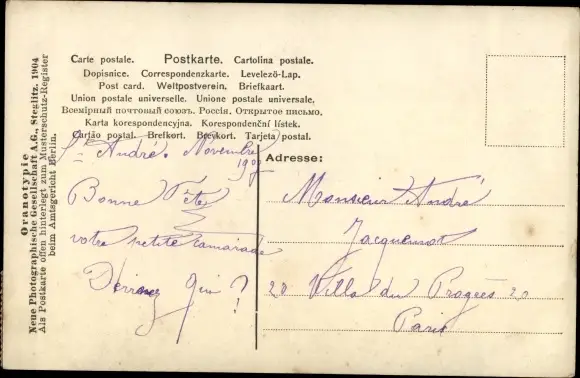 Oranotypie
Neue Photographische Gesellschaft A.G., Steglitz. 1904
Als Postkarte offen hinterlegt zum Musterschutz-Register
beim Amtsgericht Berlin.
Carte postale. Postkarte. Cartolina postale.
Dopisnice. Correspondenzkarte. Levelező-Lap.
Post card. Weltpostverein. Briefkaart.
Union postale universelle. Unione postale universale.
Всемірный почтовый союзъ. Россія. Открытое письмо.
Karta korespondencyjna. Korespondenční lístek.
Cartão postal. Brefkort. Brevkort. Tarjeta postal.
St André. Novembre
1907
Bonne Fête
votre petite camarade
Devinez Qui ?
Adresse:
Monsieur André
Jacquemot
20 Villa du Progrès 20
Paris